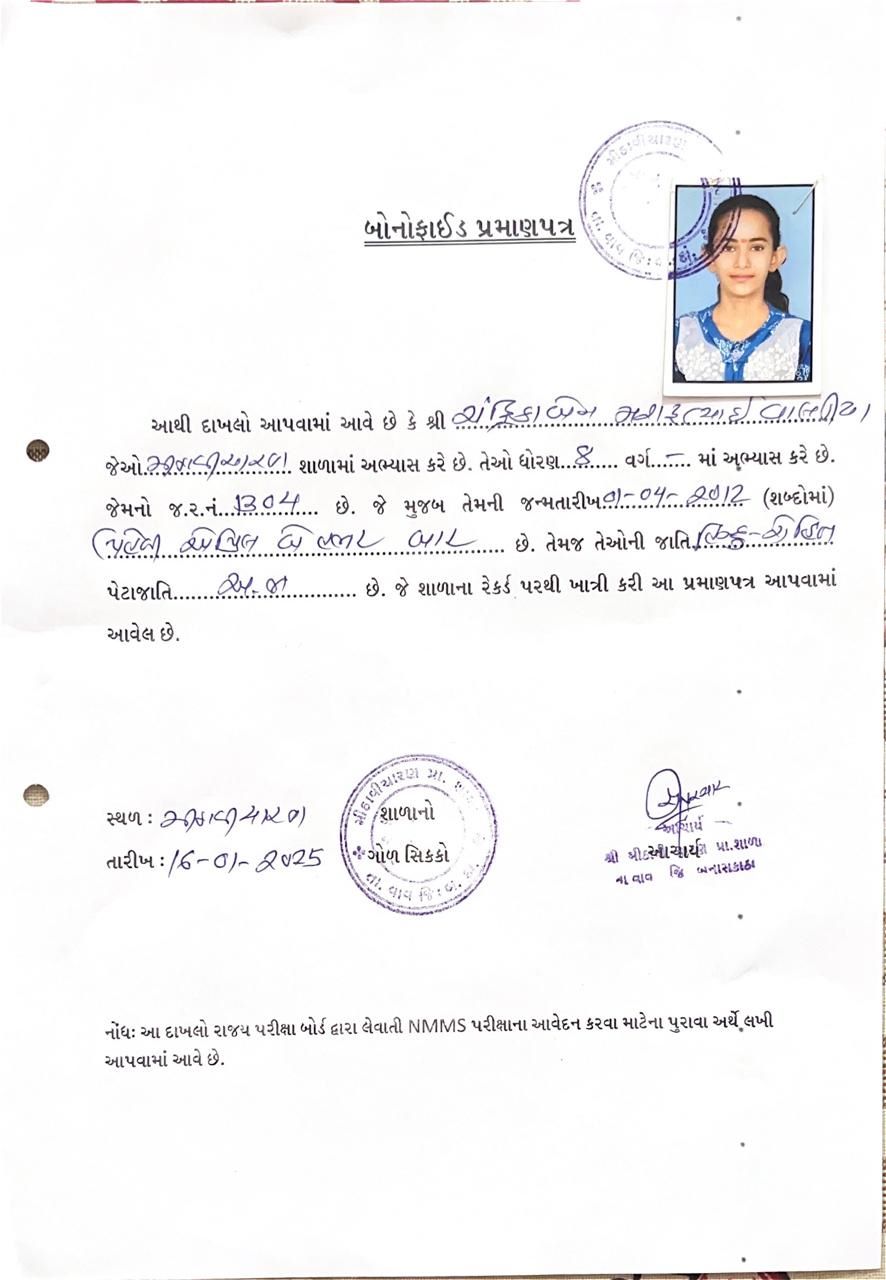 મીઠાવીચારણ
તા. વાવ જિ: બ. કાં.
બોનોફાઈડ પ્રમાણપત્ર
આથી દાખલો આપવામાં આવે છે કે શ્રી
જેઓ મીઠાવીચારણ શાળામાં અભ્યાસ કરે છે. તેઓ ધોરણ 8 વર્ગ – માં અભ્યાસ કરે છે.
જેમનો જ.ર.નં. 1304 છે. જે મુજબ તેમની જન્મતારીખ 01-04-2012 (શબ્દોમાં)
પહેલી એપ્રિલ બે હજાર બાર છે. તેમજ તેઓની જાતિ હિન્દુ-
પેટાજાતિ અ.જા છે. જે શાળાના રેકર્ડ પરથી ખાત્રી કરી આ પ્રમાણપત્ર આપવામાં
આવેલ છે.
સ્થળ : મીઠાવીચારણ
તારીખ : 16-01-2025
મીઠાવીચારણ પ્રા.
શાળાનો
ગોળ સિક્કો
તા. વાવ જિ: બ. કાં.
આચાર્ય
શ્રી પ્રા.શાળા
આચાર્ય
તા વાવ જિ બનાસકાંઠા
નોંધ: આ દાખલો રાજય પરીક્ષા બોર્ડ દ્વારા લેવાતી NMMS પરીક્ષાના આવેદન કરવા માટેના પુરાવા અર્થે લખી
આપવામાં આવે છે.